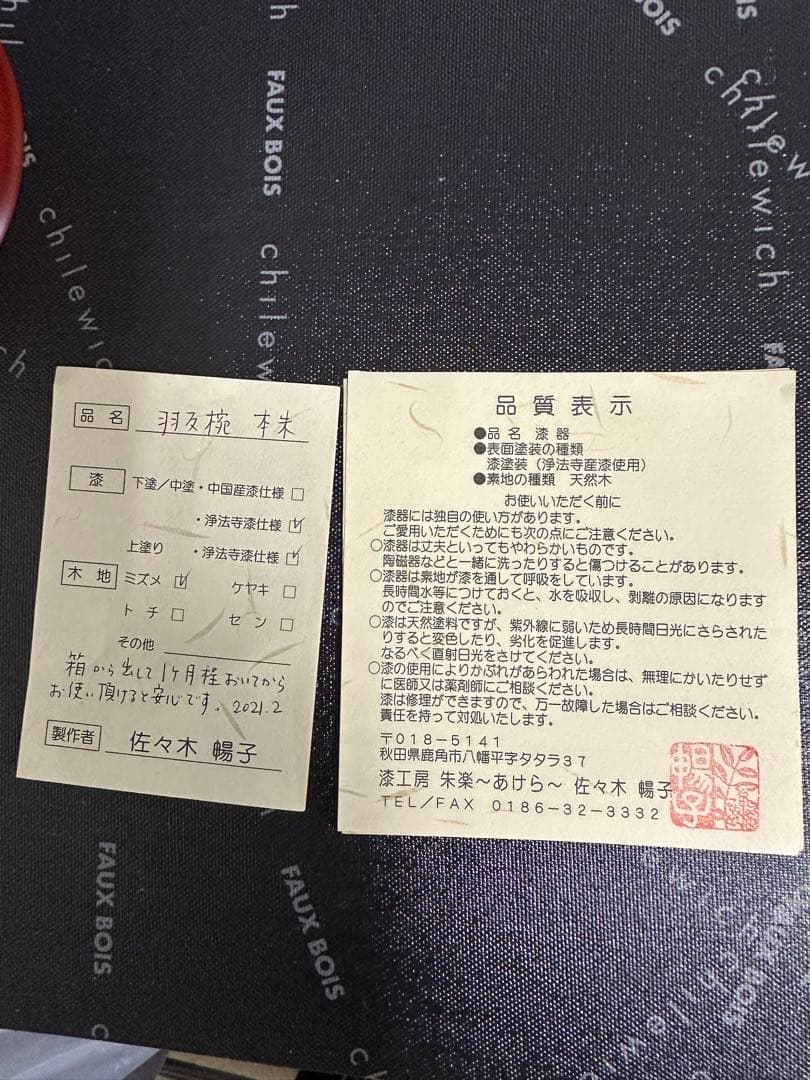 FAUX BOIS
chilewich
chilewich
chilewich
品名 羽反椀 本朱
漆 下塗／中塗・中国産漆仕様 □
・浄法寺漆仕様 ☑
上塗り ・浄法寺漆仕様 ☑
木地 ミズメ ☑ ケヤキ □
トチ □ セン □
その他
箱から出して1ヶ月程おいてから
お使い頂けると安心です。2021.2
製作者 佐々木 暢子
品質表示
●品名 漆器
●表面塗装の種類
漆塗装（浄法寺産漆使用）
●素地の種類 天然木
お使いいただく前に
漆器には独自の使い方があります。
ご愛用いただくためにも次の点にご注意ください。
○漆器は丈夫といってもやわらかいものです。
陶磁器などと一緒に洗ったりすると傷つけることがあります。
○漆器は素地が漆を通して呼吸をしています。
長時間水等につけておくと、水を吸収し、剥離の原因になります
のでご注意ください。
○漆は天然塗料ですが、紫外線に弱いため長時間日光にさらされた
りすると変色したり、劣化を促進します。
なるべく直射日光をさけてください。
○漆の使用によりかぶれがあらわれた場合は、無理にかいたりせず
に医師又は薬剤師にご相談ください。
漆は修理ができますので、万一故障した場合はご相談ください。
責任を持って対処いたします。
〒018-5141
秋田県鹿角市八幡平字タタラ37
漆工房 朱楽～あけら～ 佐々木 暢子
TEL／FAX 0186-32-3332
FAUX BOIS
FAUX BOIS
chilewich
FAUX BOIS